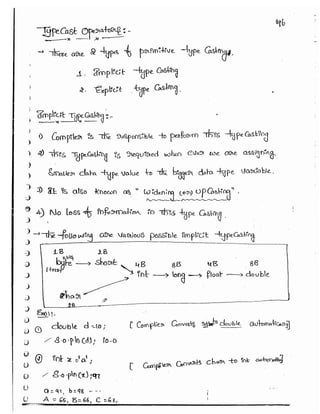 TypeCast Operators :-
→ There are 2 types of primitive type casting.
1. Implicit type Casting
2. Explicit type Casting.
Implicit TypeCasting :-
1) Compiler is the responsible to perform this type Casting
2) This TypeCasting is required when ever we are assigning
Smaller data type value to the bigger data type variable.
3) It is also known as "widening (or) upCasting".
4) No loss of information in this type Casting.
→ The following are the various possible implicit typeCasting
1B 2B
byte → short 4B 8B 4B 8B
int → long → float → double
char
2B
Ex:-
① double d = 10; [ Compiler Converts to double automatically]
S.o.pln(d); 10.0
② int x = 'a'; [ Compiler Converts char to int automatically]
S.o.pln(x); 97
a = 97, b = 98 - - -
A = 65, B = 66, C = 67.